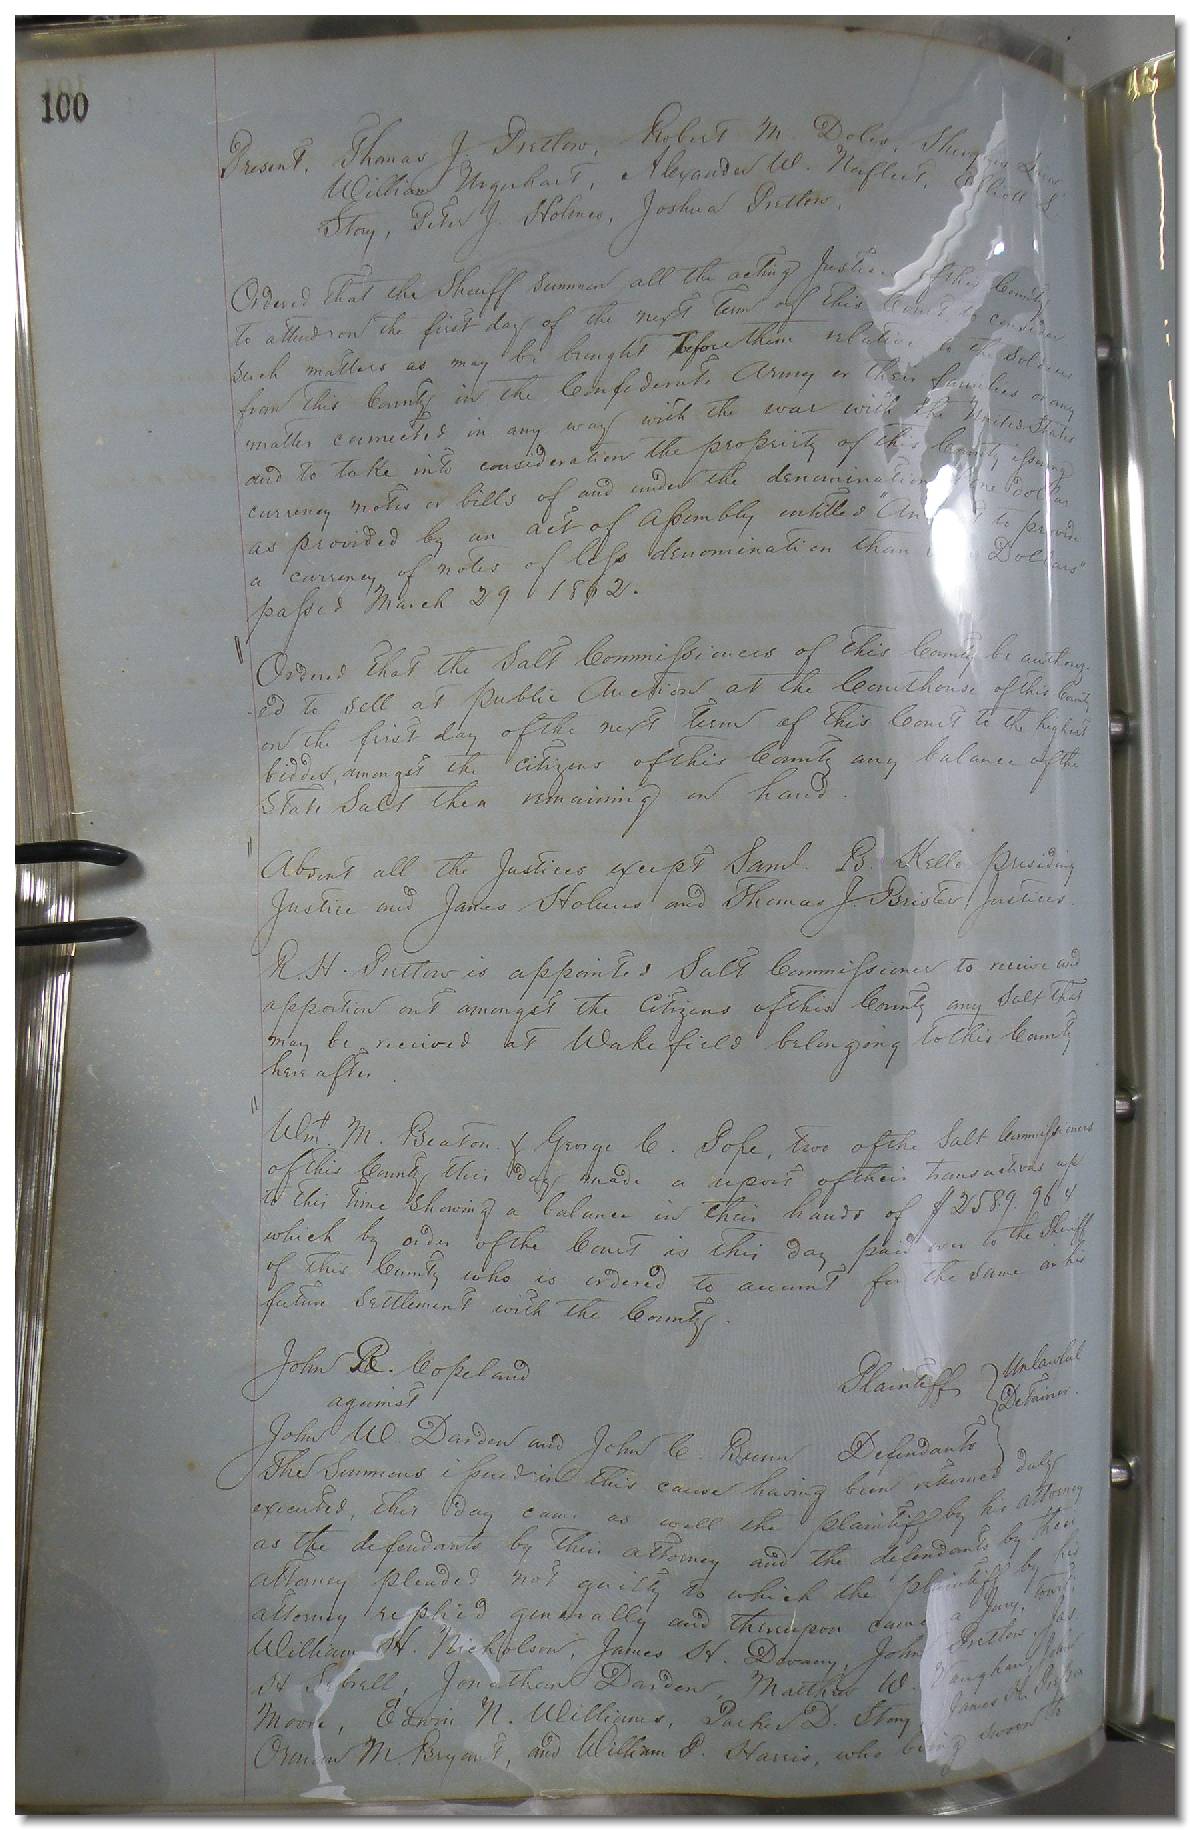 100
Present, Thomas J Pretlow, Robert M. Doles,
William Urquhart, Alexander W. Norfleet, Elliott L.
Story, Peter J. Holmes, Joshua Pretlow.
Ordered that the Sheriff summon all the acting Justices of the County
to attend on the first day of the next term of this Court to consider
such matters as may be brought before them relative to the soldiers
from this County in the Confederate Army or their families or any
matter connected in any way with the war with the United States
and to take into consideration the propriety of this County issuing
currency notes or bills of and under the denomination of one dollar
as provided by an act of Assembly entitled "An act to provide
a currency of notes of less denomination than Dollars"
passed March 29 1862.
Ordered that the Salt Commissioners of this County be authoriz-
ed to sell at public Auction at the Courthouse of this County
on the first day of the next term of this Court to the highest
bidder, amongst the citizens of this County any balance of the
State Salt then remaining on hand.
Absent all the Justices except Saml. B. Kello presiding
Justice and James Holmes and Thomas J. Pretlow Justices.
R H. Pretlow is appointed Salt Commissioner to receive and
apportion out amongst the Citizens of this County any Salt that
may be received at Wakefield belonging to this County
hereafter.
Wm. M. Beaton & George C. Pope, two of the Salt Commissioners
of this County this day made a report of their transactions up
to this time showing a balance in their hands of $2589.96¼
which by order of the Court is this day paid over to the Sheriff
of this County who is ordered to account for the same on his
future settlement with the County.
John R. Copeland Plaintiff } Unlawful
against Detainer.
John W. Darden and John C. Bunn Defendants }
The Summons issued in this cause having been returned duly
executed, this day came as well the plaintiff by his attorney
as the defendants by their attorney and the defendants by their
attorney pleaded not guilty to which the plaintiff by his
attorney replied generally and thereupon came a Jury, towit:
William H. Nicholson, James H. Devany, John Pretlow, Jas.
H Sebrell, Jonathan Darden, Matthew W. Vaughan,
Moore, Edwin N. Williams, Parker D. Story, James H.
Orman M. Bryant, and William P. Harris, who being sworn the